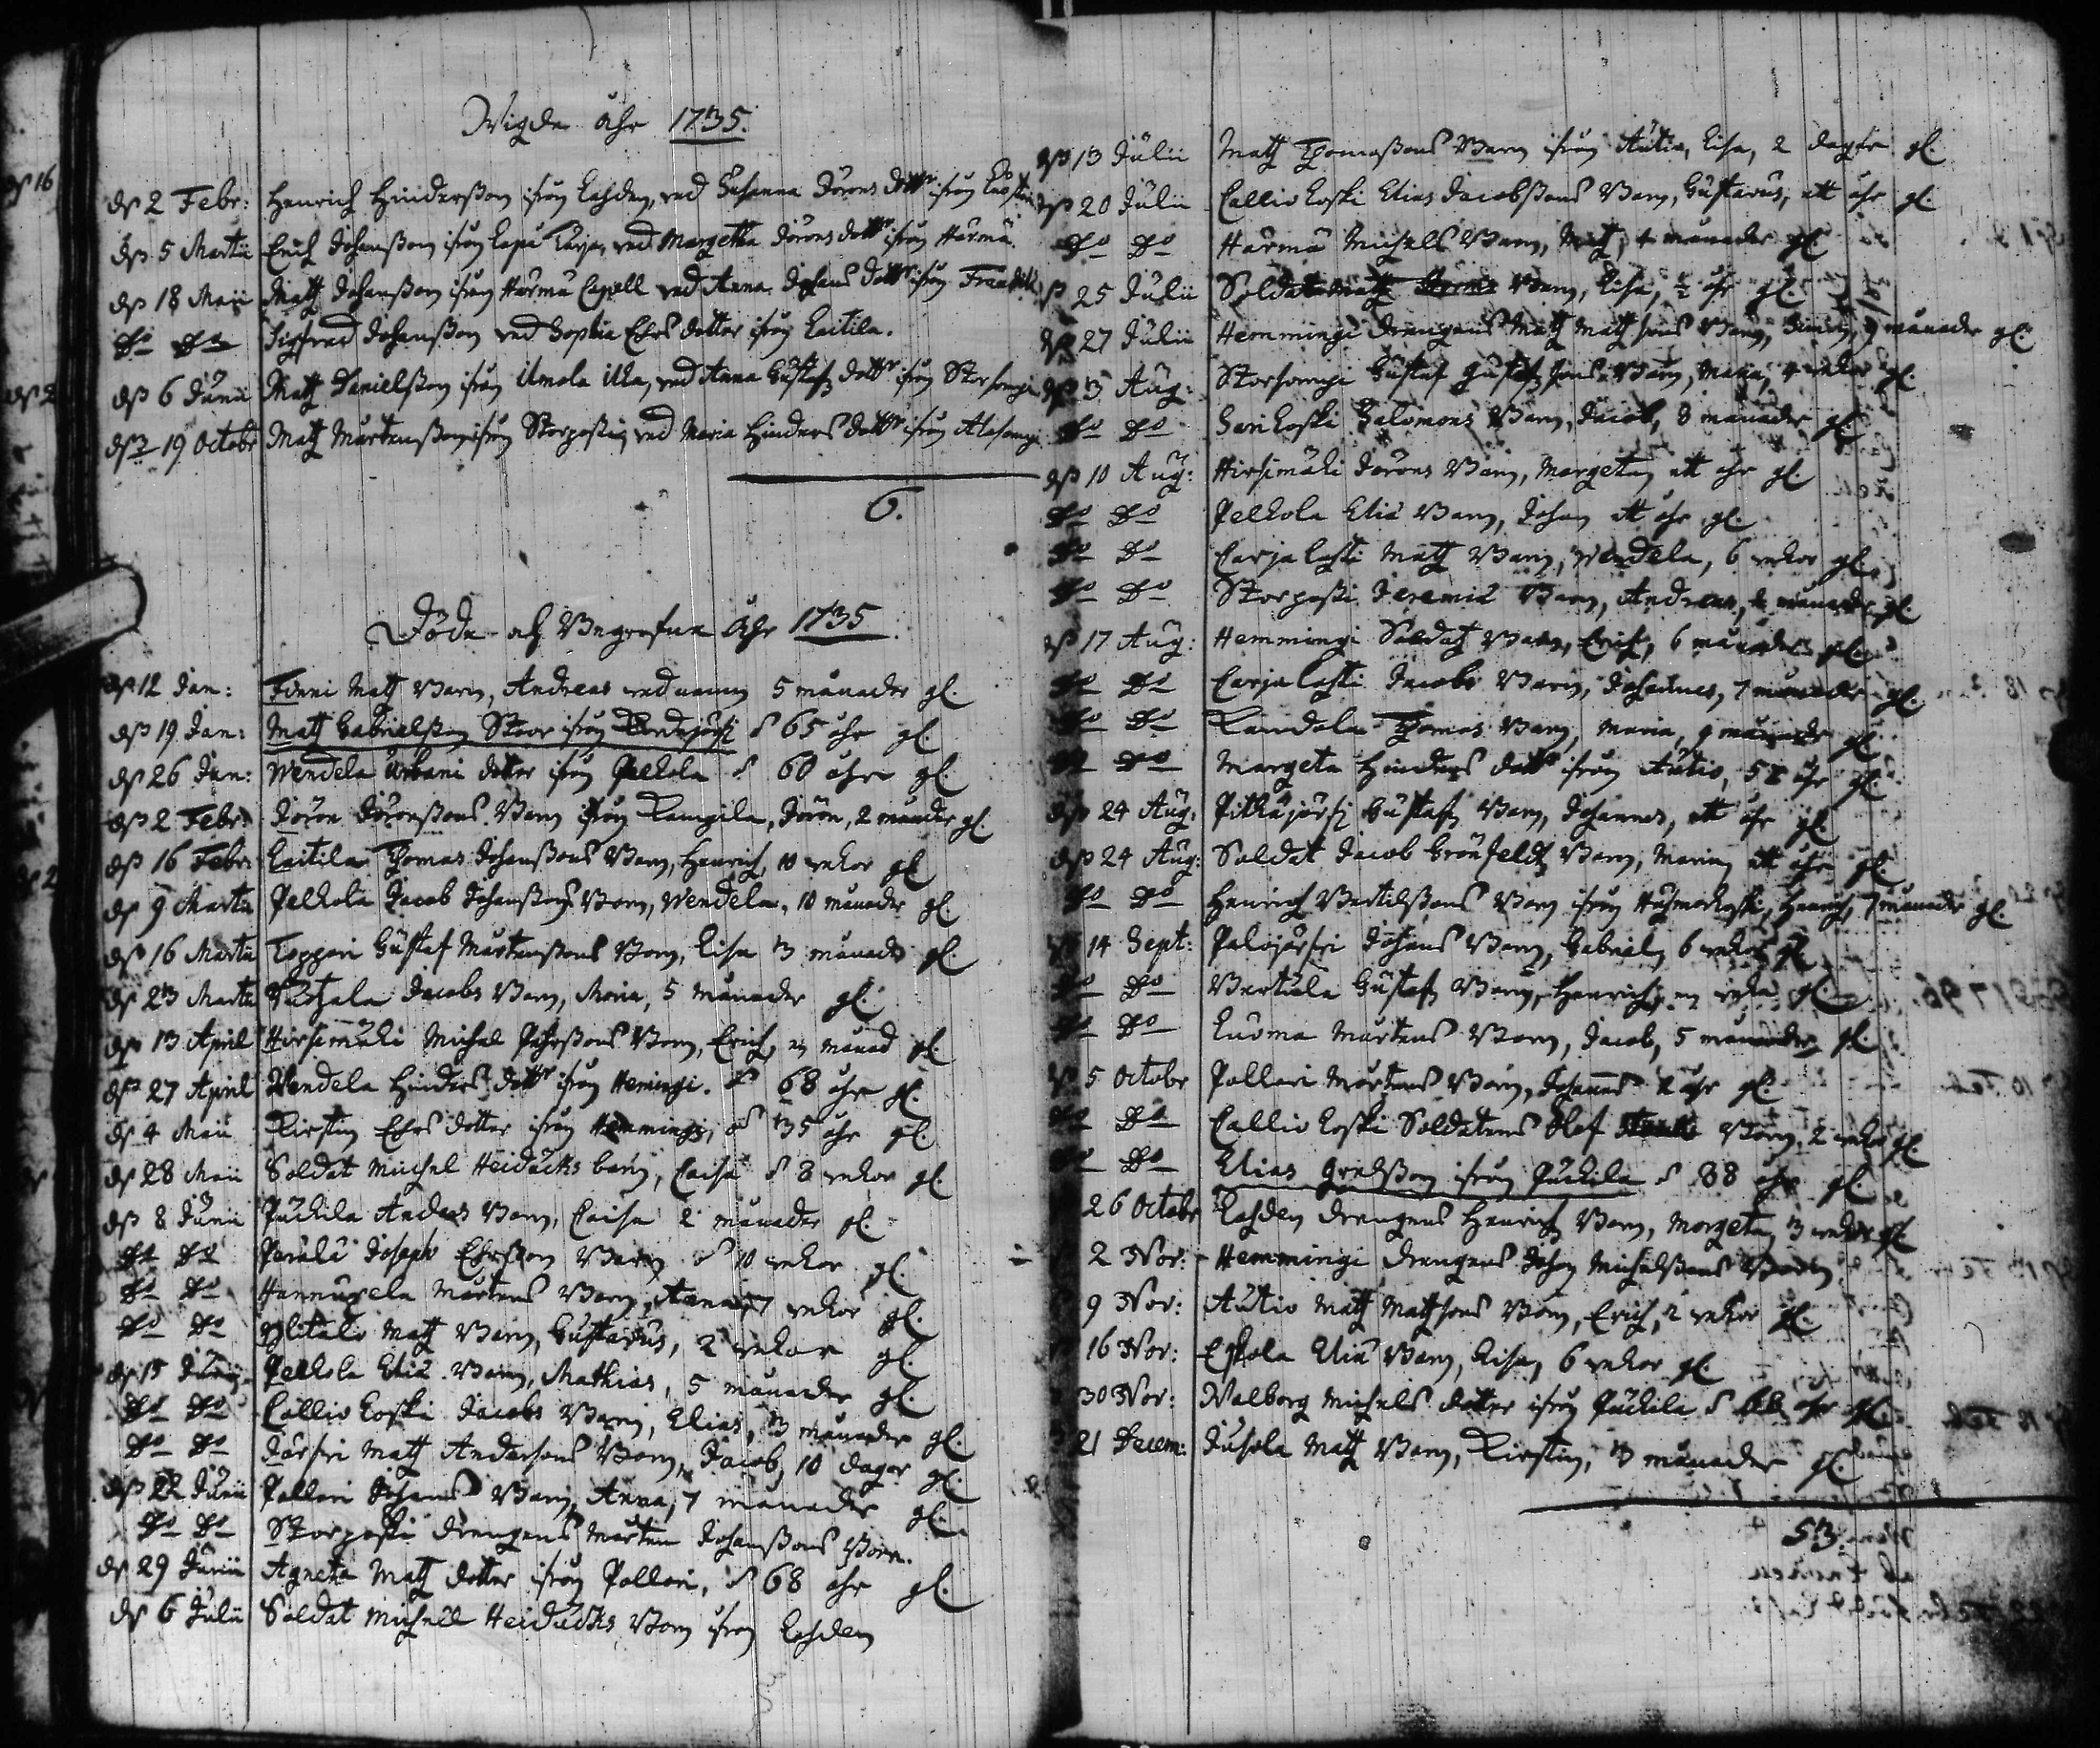 Wigde åhr 1735.
d. 2 Febr: Henrich Hindersson ifrån Lahden, med Susanna Jörens dottr ifrån
d. 5 Martii Erich Johansson ifrån Lapu Karja, med Margetha Jörens dottr ifrån Härmä
d. 18 Maii Matz Johansson ifrån Härmä Capell med Anna Johans dottr ifrån
Do Do Sigfred Johansson med Sophia Ehrs dotter ifrån Laitila.
d. 6 Junii Matz Danielsson ifrån Ilmola Illa, med Anna Gustafz dottr ifrån Storsompi
d. 19 Octobr Matz Mårtensson ifrån Storpotti, med Maria Hinders dottr ifrån Alasompi
6.
Döde och Begrafne Åhr 1735
d. 12 Jan: Finni Matz Barn, Andreas wed namn 5 månader gl.
d. 19 Jan: Matz Gabrielsson Stoor ifrån 65 åhr gl.
d. 26 Jan: Wendela Urbani dotter ifrån Pelkola 60 åhr gl.
d. 2 Febr: Jören Jörenssons Barn ifrån Kampila, Jören, 2 månader gl.
d. 16 Febr: Laitila Thomas Johanssons Barn, Henrich, 10 wekor gl.
d. 9 Martii Pelkola Jacob Johanssons Barn, Wendela, 10 månader gl.
d. 16 Martii Toppari Gustaf Mårtenssons Barn, Lisa 3 månader gl.
d. 23 Martii Jacobs Barn, Maria, 5 månader gl.
d. 13 April Hirsimäki Michel Påhrssons Barn, Erich, en månad gl.
d. 27 April Wendela Hinders dottr ifrån Hemmingi. 68 åhr gl.
d. 4 Maii Kirstin Ehrs dotter ifrån Hemmingi, 35 åhr gl.
d. 28 Maii Soldat Michel Heiducks barn, Caisa 8 wekor gl.
d. 8 Junii Puckila Anders Barn, Caisa 2 månader gl.
Do Do Perälä Joseph Ehrsson Barn 10 wekor gl.
Do Do Hannuxela Mårtens Barn, Anna, 7 wekor gl.
Do Do Ylitalo Matz Barn, Gustavus, 2 wekor gl.
d. 15 Junii Pelkola Eliæ Barn, Mathias, 5 månader gl.
Do Do Callio Koski Jacobs Barn, Elias, 3 månader gl.
Do Do Järfwi Matz Andersons Barn, Jacob, 10 dagar gl.
d. 22 Junii Pollari Johans Barn, Anna, 7 månader gl.
Do Do Storpotti Drengens Mårten Johanssons Barn.
d. 29 Junii Agneta Matz dotter ifrån Pollari, 68 åhr gl.
d. 6 Julii Soldat Michell Heiducks Barn ifrån Lahden
d. 13 Julii Matz Thomassons Barn ifrån Autio, Lisa, 2 dagar gl.
d. 20 Julii Callio Koski Elias Jacobssons Barn, Gustavus, ett åhr gl.
Do Do Härmä Michels Barn, Matz, 4 månader gl.
d. 25 Julii Soldat Matz Barn, Lisa, ½ åhr gl.
d. 27 Julii Hemmingi Drengens Matz Matzsons Barn, 9 månader gl.
d. 3 Aug: Storsompi Gustaf Gustafsons Barn, Maria, 4 wekor gl.
Do Do Sari Koski Salomons Barn, Jacob, 8 månader gl.
d. 10 Aug: Hirsimäki Jörens Barn, Margeta, ett åhr gl.
Do Do Pelkola Eliæ Barn, Johan ett åhr gl.
Do Do Carja Lasti Matz Barn, Wendela, 6 wekor gl.
Do Do Storpotti Jeremiæ Barn, Andreas, månader gl.
d. 17 Aug: Hemmingi Soldatz Barn, Erich, 6 månader gl.
Do Do Carja Lasti Jacobs Barn, Johannes, 7 månader gl.
Do Do Kandola Thomas Barn, Maria, 9 månader gl.
Do Do Margeta Hinders dottr ifrån Autio, 58 åhr gl.
d. 24 Aug: Pitkäjärfwi Gustafz Barn, Johannes, ett åhr gl.
d. 24 Aug: Soldat Jacob Grönfeldtz Barn, Maria, ett åhr gl.
Do Do Henrich Bertilssons Barn ifrån Henrich, 7 månader gl.
14 Sept: Palojärfwi Johans Barn, Gabriel, 6 wekor gl.
Do Do Bertula Gustafz Barn, Henrich, en weka gl.
Do Do Luoma Mårtens Barn, Jacob, 5 månader gl.
5 Octobr Pollari Mårtens Barn, Johannes 2 åhr gl.
Do Do Callio Koski Soldatens Olof Barn, 2 wekor gl.
Do Do Elias Grelsson ifrån Puckila 88 åhr gl.
26 Octobr Lahden Drengens Henrich Barn, Margeta, 3 wekor gl.
2 Nov: Hemmingi Drengens Johan Michelssons Barn
9 Nov: Autio Matz Matzsons Barn, Erich, 2 wekor gl.
16 Nov: Eskola Eliæ Barn, Lisa, 6 wekor gl.
30 Nov: Walborg Michels dotter ifrån Puckila åhr gl.
21 Decem: Jusola Matz Barn, Kirstin, 3 månader gl.
53.